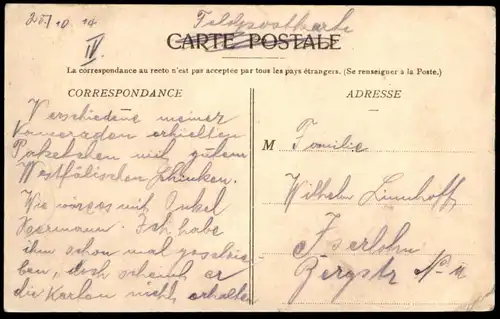 25/10.14
IV.
Feldpostkarte
CARTE POSTALE
La correspondance au recto n'est pas acceptée par tous les pays étrangers. (Se renseigner à la Poste.)
CORRESPONDANCE
Verschiedene meiner
Kameraden erhielten
Paketchen mit gutem
Westfälischen Schinken.
Wie wär es mit Onkel
Hermann. Ich habe
ihm schon mal geschrie
ben, doch scheint er
die Karten nicht erhalten
ADRESSE
M
Familie
Wilhelm Linnhoff
Iserlohn
Bergstr No